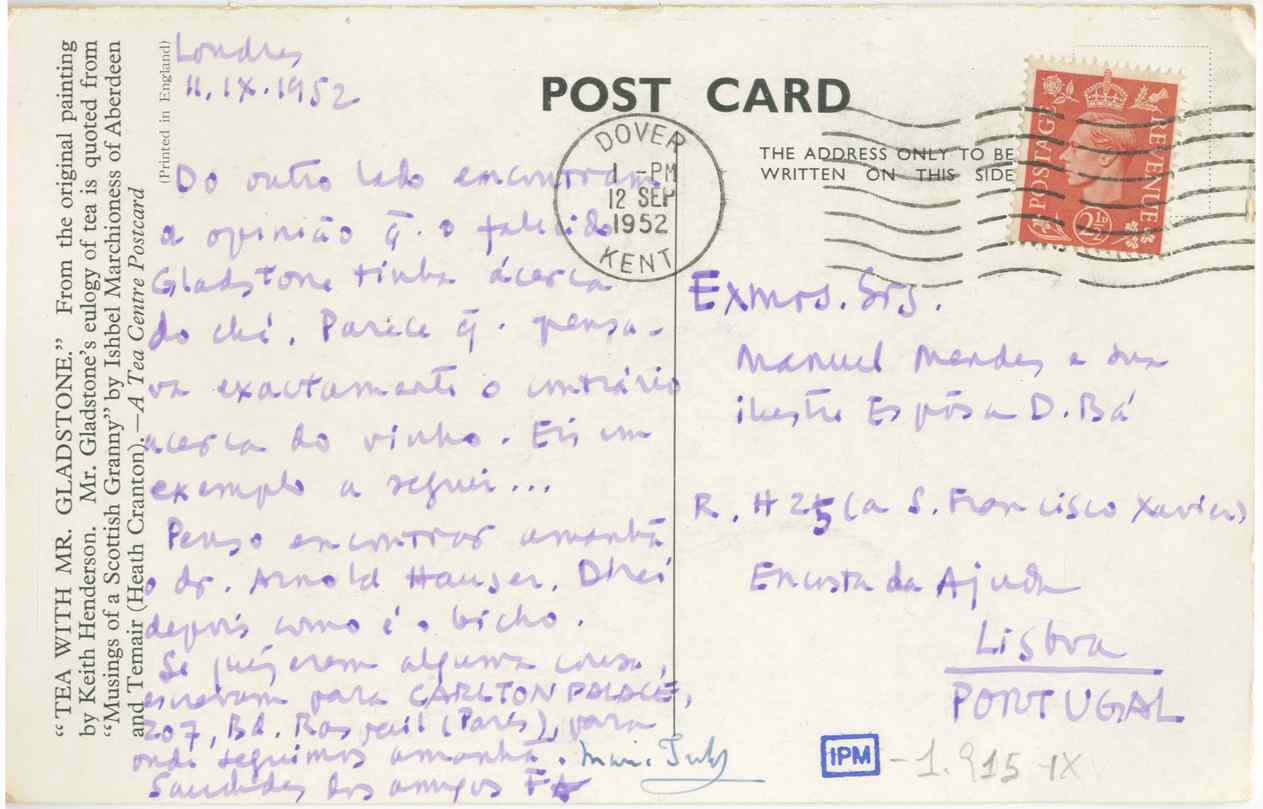 “TEA WITH MR. GLADSTONE.” From the original painting
by Keith Henderson. Mr. Gladstone’s eulogy of tea is quoted from
“Musings of a Scottish Granny” by Ishbel Marchioness of Aberdeen
and Temair (Heath Cranton).—A Tea Centre Postcard
(Printed in England)
Londres
11.IX.1952
Do outro lado encontram
a opinião q̄. o falecido
Gladstone tinha ácerca
do chá. Parece q̄. pensa-
va exactamente o contrário
acerca do vinho. Eis um
exemplo a seguir...
Penso encontrar amanhã
o dr. Arnold Hauser. Direi
depois como é o bicho.
Se quizerem alguma cousa,
escrevam para CARLTON PALACE,
207, Bd. Raspail (Paris), para
onde seguimos amanhã.
Saudades dos amigos
POST CARD
THE ADDRESS ONLY TO BE
WRITTEN ON THIS SIDE
DOVER
1 -PM
12 SEP
1952
KENT
POSTAGE
REVENUE
2½D
Exmos. Srs.
Manuel Mendes e sua
ilustre Espôsa D. Bá
R. H 25 (a S. Francisco Xavier)
Encosta da Ajuda
Lisboa
PORTUGAL
IPM -1.915-IX